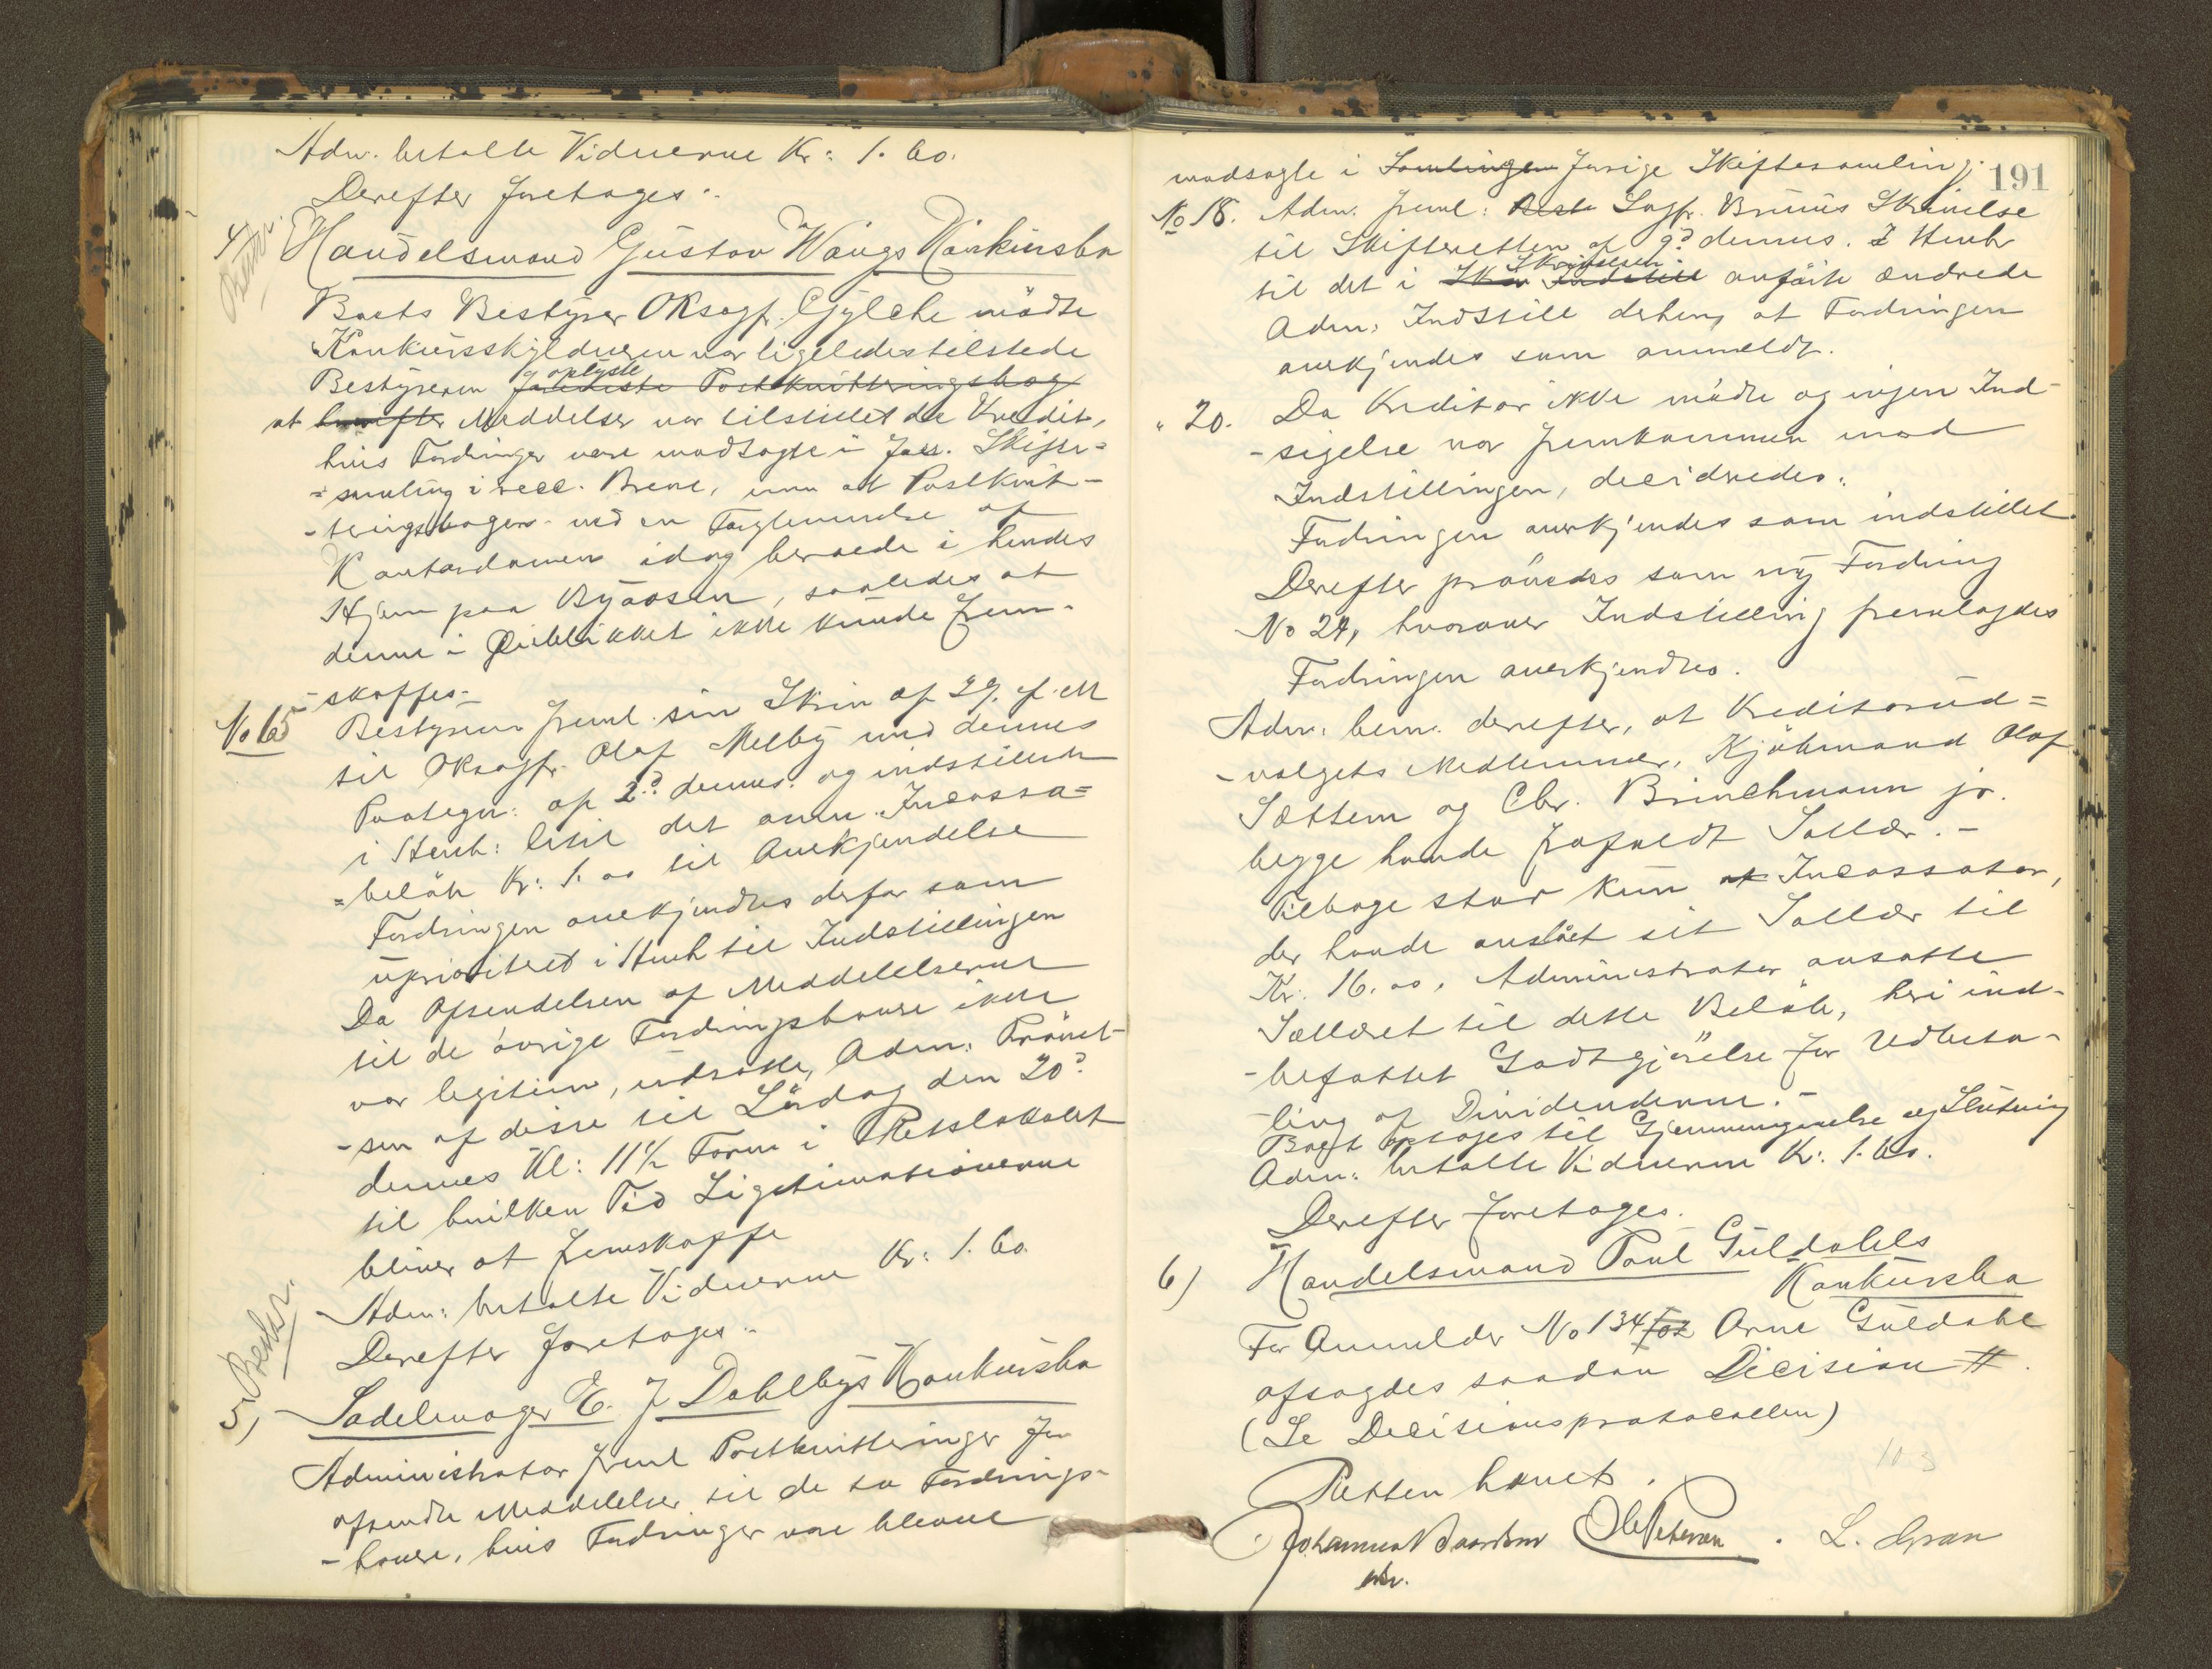 Adm. betalte Vidnerne Kr: 1.60.
Derefter foretoges:
4/ Beskr. Handelsmand Gustav Wangs Konkursbo
Boets Bestyrer OKsagf. Gylche mödte
Konkursskyldneren var ligeledes tilstede
Bestyreren fremlagte Postkvitteringsbog oplyste
at hvorefter Meddelelse var tilstillet de Kredit,
hvis Fordringer vare modsagte i Forr. Skifte=
=samling i recc. Breve, men at Postkvit-
-teringsbogen ved en Forglemmelse af
Kontordamen idag beroede i hendes
Hjem paa Byaasen, saaledes at
denne i Øieblikket ikke kunde frem-
-skaffes.-
No 65 Bestyreren freml. sin Skriv af 29. f. M
til OKsagf. Olaf Melby med dennes
Paategn: af 2d dennes. og indstillede
i Henh: hertil det anm. Incasso=
=beløb Kr: 1.00 til Anerkjendelse
Fordringen anerkjendtes derfor som
uprioriteret i Henh til Indstillingen
Da Afsendelsen af Meddelelserne
til de övrige Fordringshavere ikke
var legitim, udsatte, Adm: Prövel-
-sen af disse til Lördag den 20d
dennes Kl: 11½ Form i Retslokalet
til hvilken Tid Legitimationerne
bliver at fremskaffe
Adm: betalte Vidnerne Kr: 1.60.
Derefter foretoges:
5) Beskr. Sadelmager E. J Dahlbys Konkursbo
Administrator freml Postkvitteringer for
afsendte Meddelelser til de to Fordrings-
-havere, hvis Fordringer vare blevne
191
modsagte i Samlingen forrige Skiftesamling.
No 18. Adm. freml: Sagf. Bruuns Skrivelse
til Skifteretten af 9d dennes. I Henh
til det i Skrivelsen anførte ændrede
Adm. Indstill derhen, at Fordringen
anerkjendes som anmeldt.
" 20. Da Kreditor ikke mödte og ingen Ind-
-sigelse var fremkommen mod
Indstillingen, decideredes:
Fordringen anerkjendes som indstillet
Derefter prövedes som ny Fordring
No 24, hvorover Indstilling fremlagdes
Fordringen anerkjendtes.
Adm. bem. derefter, at Kreditorud=
-valgets Medlemmer, Kjöbmand Olaf
Sættem og Chr. Brinchmann jr.
begge havde frafaldt Sallær.-
Tilbage staar kun Incassator,
der havde anslået sit Sallær til
Kr. 16.00, Administrator ansatte
Sallæret til dette Belöb, heri ind-
-befattet Godtgjörelse for Udbeta-
-ling af Dividenderne.-
Boet optoges til Gjennemgaaelse og Slutning
Adm: betalte Vidnerne Kr: 1.60.
Derefter foretoges.
6) Handelsmand Paul Guldahls
Konkursbo
For Anmelder No 134 for Arne Guldahl
afsagdes saadan Decision #.
(Se Decisionsprotocollen)
Retten hævet.
L. Gran